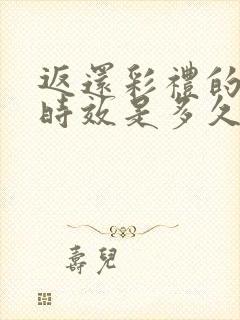 返還彩禮的
時效是多久
壽兒